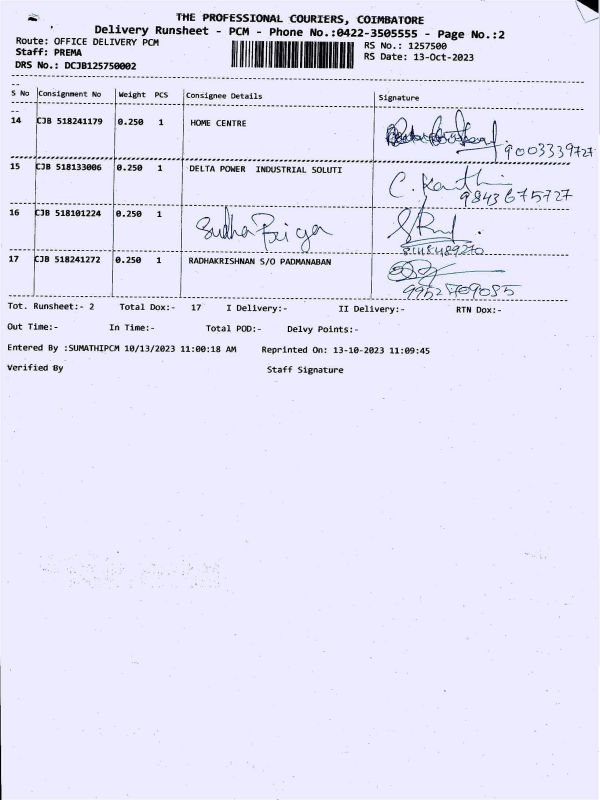 THE PROFESSIONAL COURIERS, COIMBATORE
Delivery Runsheet - PCM - Phone No.:0422-3505555 - Page No.:2
Route: OFFICE DELIVERY PCM RS No.: 1257500
Staff: PREMA RS Date: 13-Oct-2023
DRS No.: DCJB125750002
S No Consignment No Weight PCS Consignee Details Signature
14 CJB 518241179 0.250 1 HOME CENTRE
9003339727
15 CJB 518133006 0.250 1 DELTA POWER INDUSTRIAL SOLUTI C. Kanthi
9843675727
16 CJB 518101224 0.250 1 Sudha Priya
8148489270
17 CJB 518241272 0.250 1 RADHAKRISHNAN S/O PADMANABAN
9952709085
Tot. Runsheet:- 2 Total Dox:- 17 I Delivery:- II Delivery:- RTN Dox:-
Out Time:- In Time:- Total POD:- Delvy Points:-
Entered By :SUMATHIPCM 10/13/2023 11:00:18 AM Reprinted On: 13-10-2023 11:09:45
Verified By Staff Signature